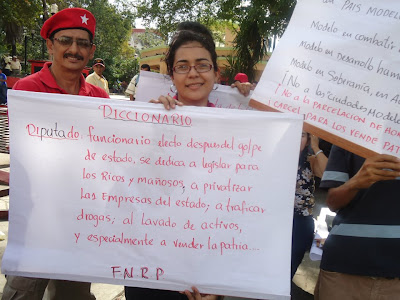 DICCIONARIO
Diputado: funcionario electo despues del golpe
de estado, se dedica a legislar para
los Ricos y mañosos, a privatizar
Las Empresas del estado; a traficar
drogas; al lavado de activos,
y especialmente a vender la patria...
F.N.R.P
PAIS MODELO
Modelo en combatir
Modelo en Desarrollo huma
Modelo en Soberanía, en
¡No a las Ciudades Modelo
¡No a la PARCELACION DE HON
¡CARCEL PARA LOS VENDE PATR